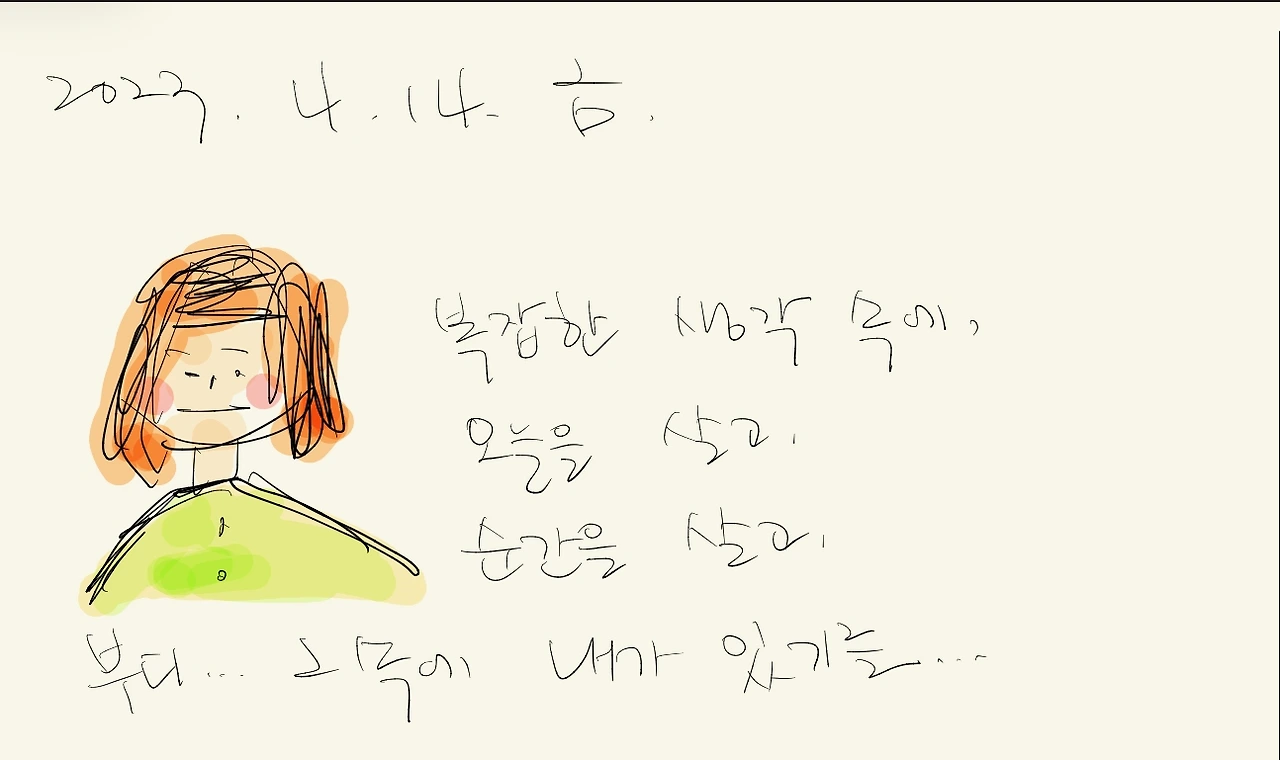 2023. 4. 14. 금.
복잡한 생각 속에,
오늘을 살고,
순간을 살고,
부디... 그 속에 내가 있기를...